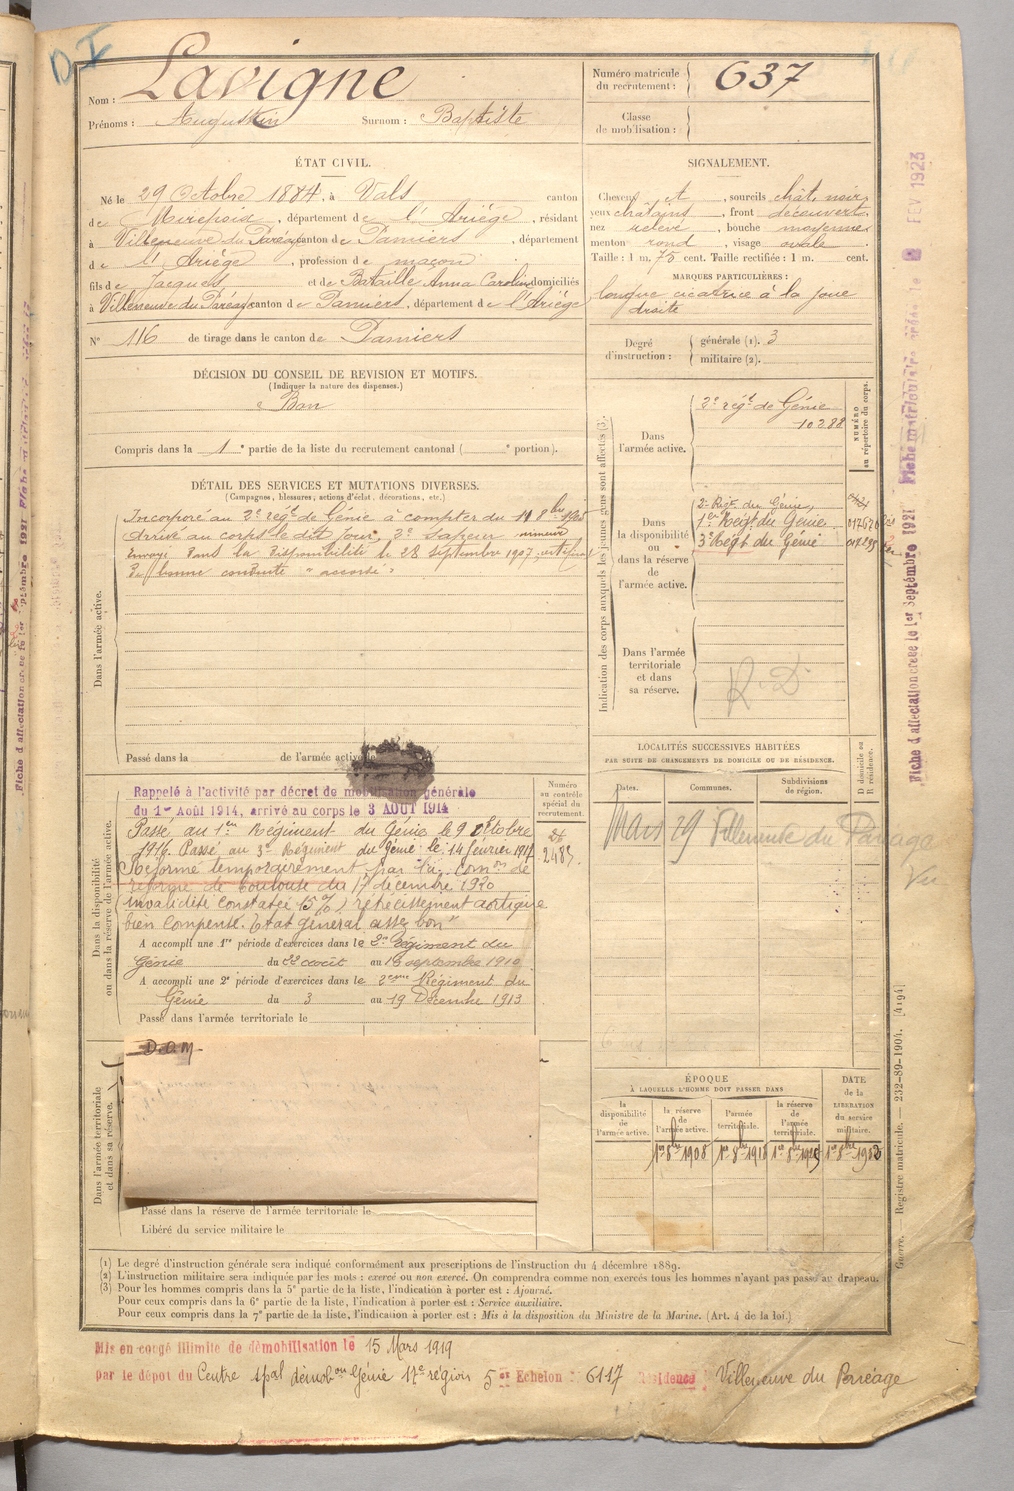 D I
Nom : Lavigne
Prénoms : Augustin Surnom : Baptiste
Numéro matricule du recrutement : 637
Classe de mobilisation :
ÉTAT CIVIL.
Né le 29 Octobre 1884, à Vals canton
de Mirepoix, département de l'Ariège, résidant
à Villeneuve du Paréage canton de Pamiers, département
de l'Ariège, profession de maçon
fils de Jacques et de Bataille Anna Caroline domiciliés
à Villeneuve du Paréage canton de Pamiers, département de l'Ariège
N° 116 de tirage dans le canton de Pamiers
SIGNALEMENT.
Cheveux et, sourcils chât. noir
yeux châtains, front découvert,
nez relevé, bouche moyenne
menton rond, visage ovale
Taille : 1 m. 75 cent. Taille rectifiée : 1 m. cent.
MARQUES PARTICULIÈRES :
longue cicatrice à la joue
droite
Degré d'instruction : générale (1). 3
militaire (2).
DÉCISION DU CONSEIL DE REVISION ET MOTIFS.
(Indiquer la nature des dispenses.)
Bon
Compris dans la 1e partie de la liste du recrutement cantonal ( e portion).
DÉTAIL DES SERVICES ET MUTATIONS DIVERSES.
(Campagnes, blessures, actions d'éclat, décorations, etc.)
Dans l'armée active.
Incorporé au 2e régt de Génie à compter du 8bre 1905
Arrivé au corps le dit jour, 2e Sapeur mineur
Envoyé dans la disponibilité le 28 septembre 1907, certificat
de bonne conduite "accordé"
Passé dans la de l'armée active
Indication des corps auxquels les jeunes gens sont affectés (3).
NUMÉRO au répertoire du corps.
Dans l'armée active.
2e régt de Génie
10288
Dans la disponibilité ou dans la réserve de l'armée active.
2e Rgt du Génie
1er Régt du Génie
3e Régt du Génie
Dans l'armée territoriale et dans sa réserve.
R. D.
Dans la disponibilité ou dans la réserve de l'armée active.
Numéro au contrôle spécial du recrutement.
Rappelé à l'activité par décret de mobilisation générale
du 1er Août 1914, arrivé au corps le 3 AOUT 1914
Passé au 1er Régiment du Génie le 9 Octobre
1916. Passé au 3e Régiment du Génie le 14 février 1917
Réformé temporairement par la Comon de
réforme de Toulouse du 17 décembre 1920
invalidité constatée 15% rétrécissement aortique
bien compensé. Etat général assez bon"
A accompli une 1re période d'exercices dans le 2e Régiment du
Génie du 22 août au septembre 1910
A accompli une 2e période d'exercices dans le 2eme Régiment du
Génie du 3 au 19 Décembre 1913
Passé dans l'armée territoriale le
LOCALITÉS SUCCESSIVES HABITÉES
PAR SUITE DE CHANGEMENTS DE DOMICILE OU DE RÉSIDENCE.
Dates. Communes. Subdivisions de région. D domicile ou R résidence.
Mars 29 Villeneuve du Paréage
Vu
Dans l'armée territoriale et dans sa réserve.
D.A.M
Passé dans la réserve de l'armée territoriale le
Libéré du service militaire le
ÉPOQUE
À LAQUELLE L'HOMME DOIT PASSER DANS
la disponibilité de l'armée active. la réserve de l'armée active. l'armée territoriale. la réserve de l'armée territoriale. DATE de la LIBÉRATION du service militaire.
1er 8bre 1908
(1) Le degré d'instruction générale sera indiqué conformément aux prescriptions de l'instruction du 4 décembre 1889.
(2) L'instruction militaire sera indiquée par les mots : exercé ou non exercé. On comprendra comme non exercés tous les hommes n'ayant pas passé au drapeau.
(3) Pour les hommes compris dans la 5e partie de la liste, l'indication à porter est : Ajourné.
Pour ceux compris dans la 6e partie de la liste, l'indication à porter est : Service auxiliaire.
Pour ceux compris dans la 7e partie de la liste, l'indication à porter est : Mis à la disposition du Ministre de la Marine. (Art. 4 de la loi.)
Mis en congé illimité de démobilisation le 15 Mars 1919
par le dépôt du Centre spal démobon Génie 17e région 5e Echelon 6117 Résidence Villeneuve du Paréage
Guerre. Registre matricule. — 232-89-1904. [4194]
Fiche d'affectation créée le 1er Septembre 1921
Fiche matriculaire créée le FEV 1923
Fiche d'affectation créée le 1er Septembre 1921